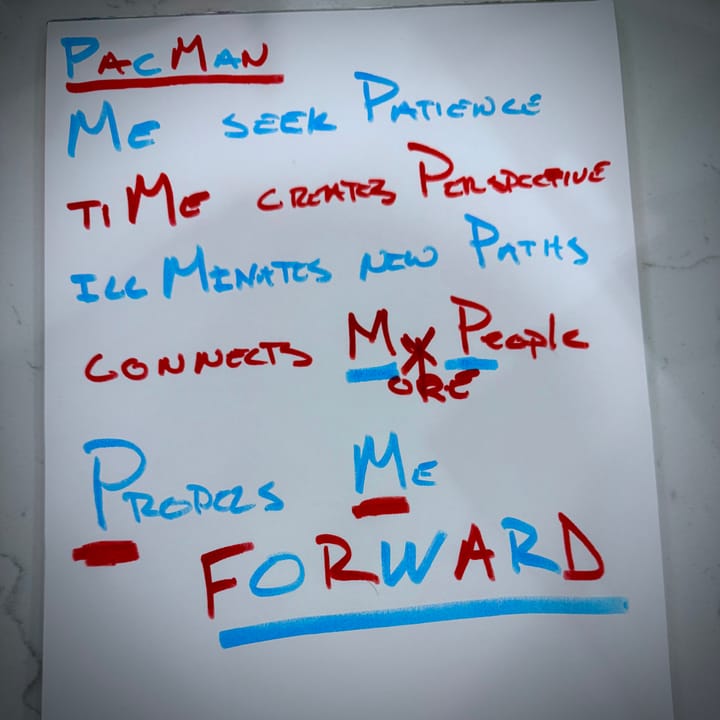 PACMAN
ME SEEK PATIENCE
TIME CREATES PERSPECTIVE
ILLMINATES NEW PATHS
CONNECTS MORE People
PROPELS ME
FORWARD